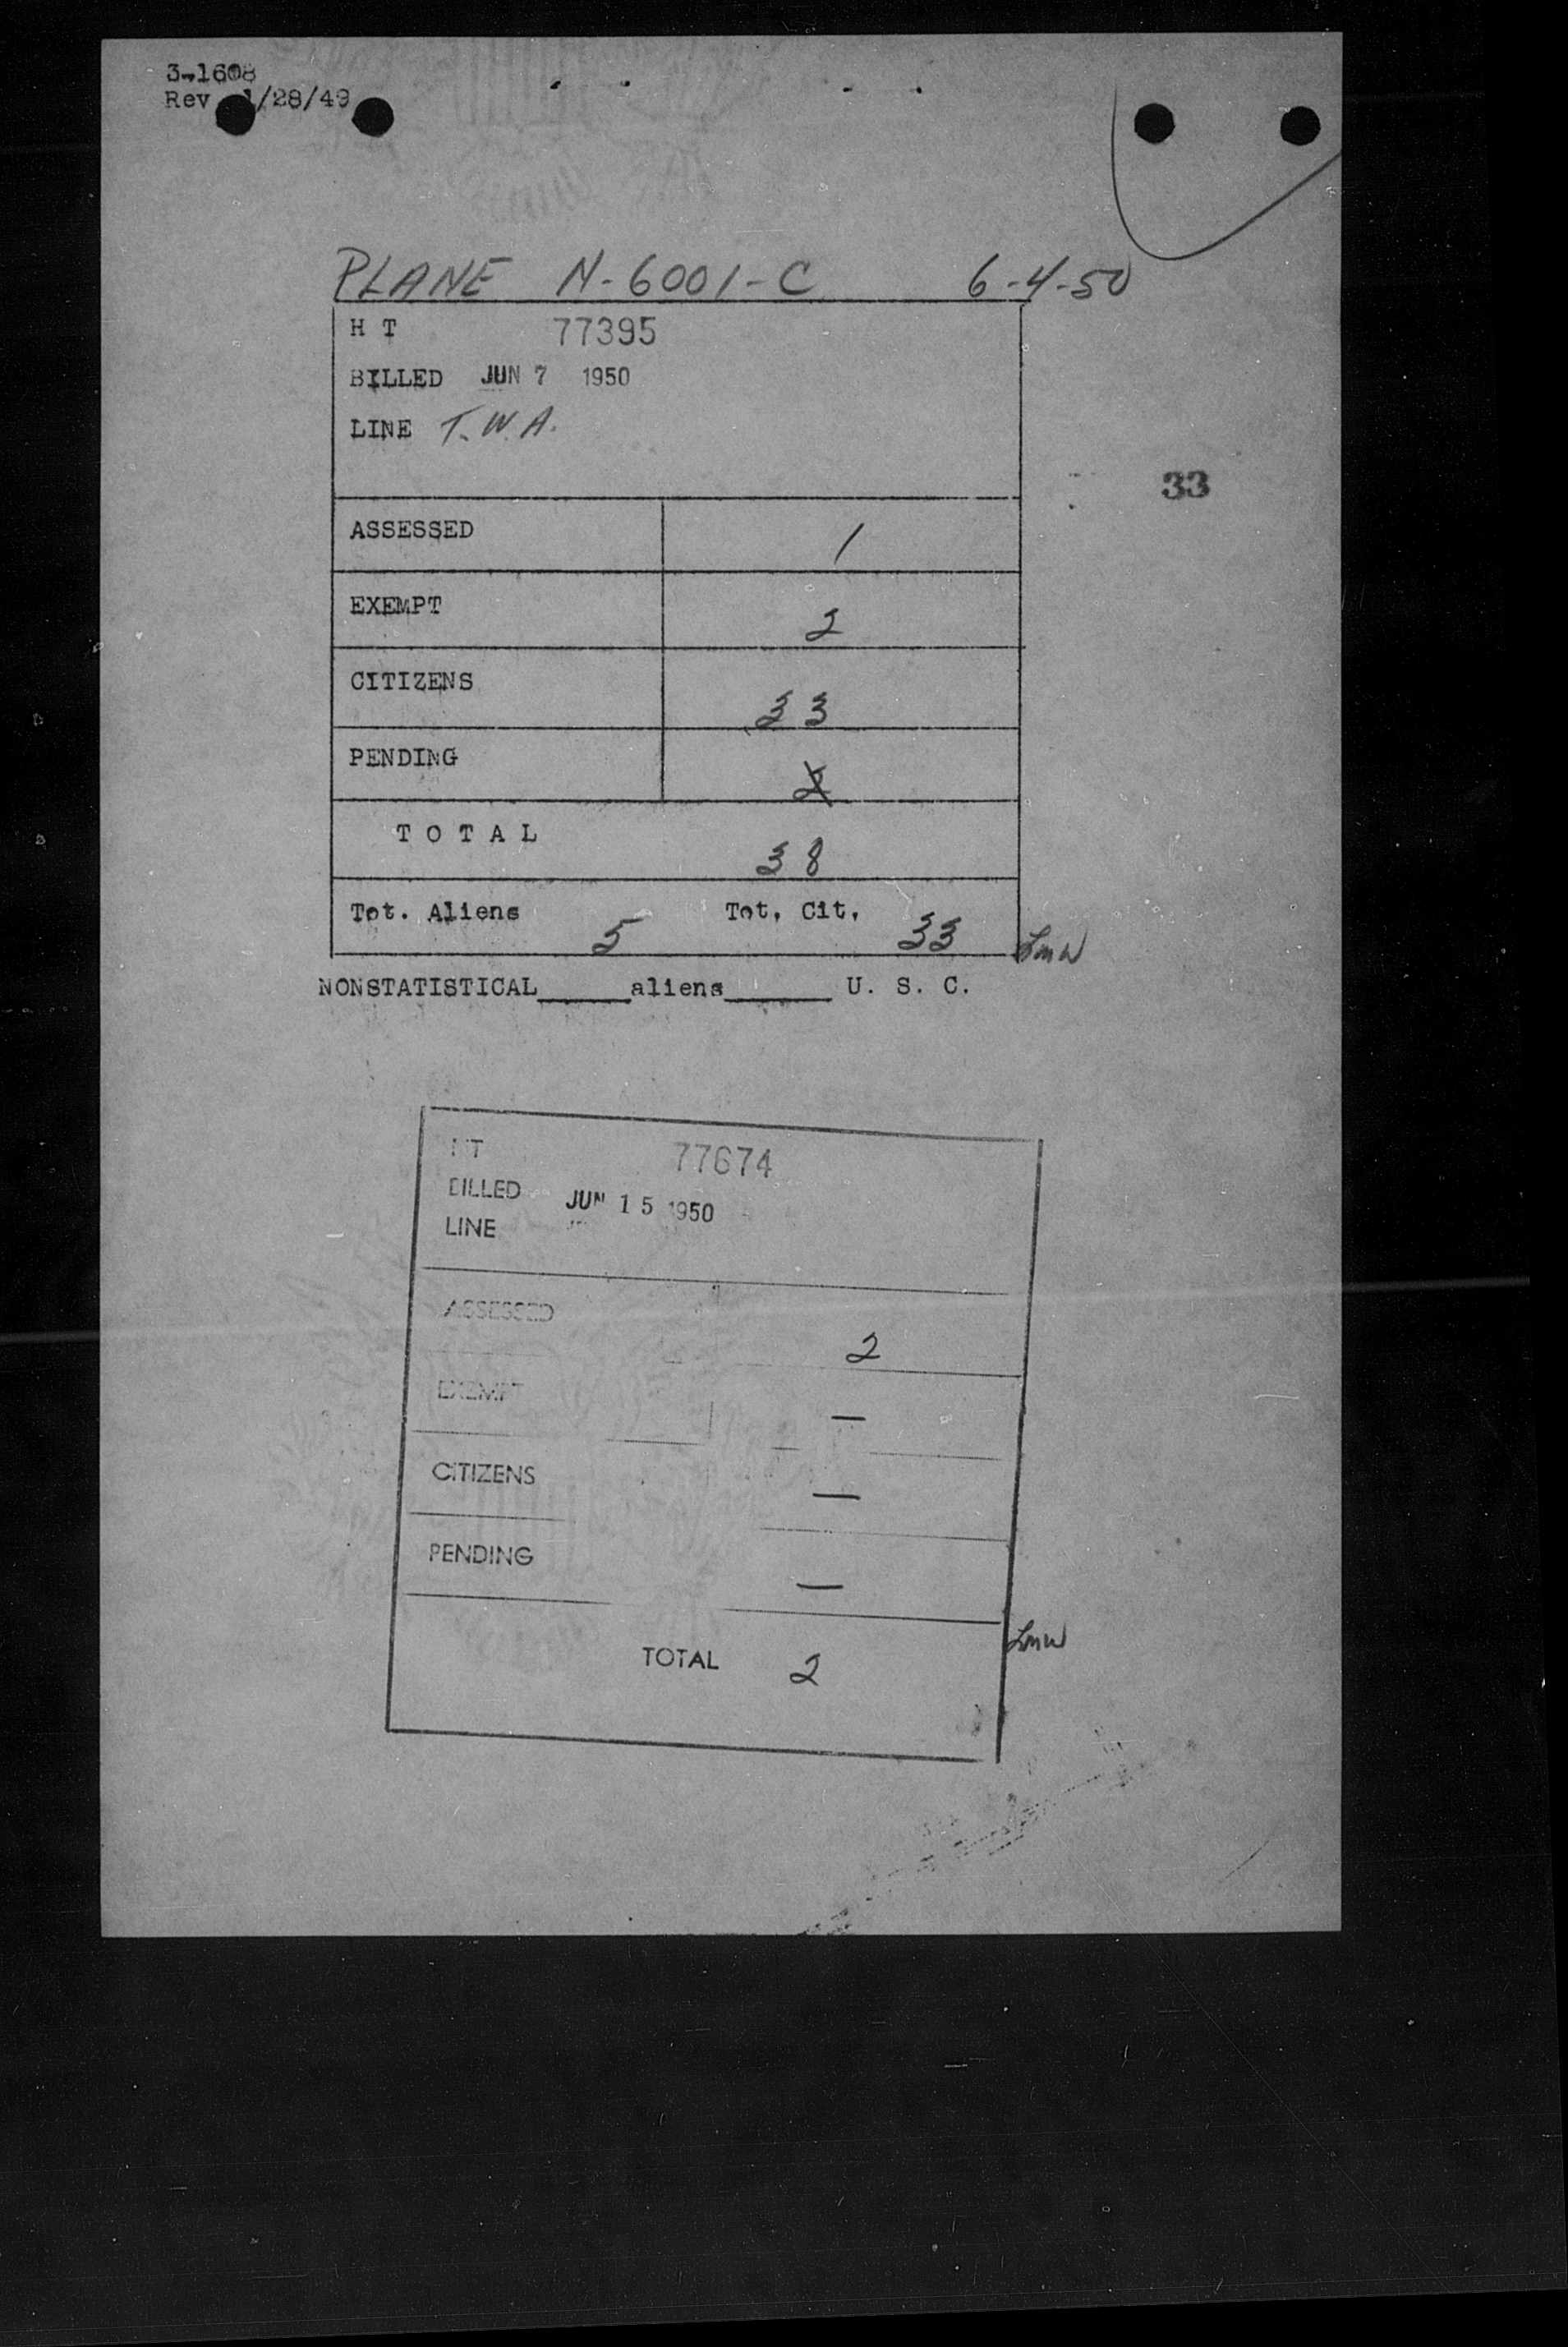 3-1608
Rev 1/28/49
PLANE N-6001-C 6-4-50
H T 77395
BILLED JUN 7 1950
LINE T.W.A.
33
ASSESSED 1
EXEMPT 2
CITIZENS 33
PENDING 2
TOTAL 38
Tot. Aliens 5 Tot. Cit. 33 LMW
NONSTATISTICAL_____aliens______ U. S. C.
HT 77674
BILLED JUN 15 1950
LINE
ASSESSED 2
EXEMPT —
CITIZENS —
PENDING —
LMW
TOTAL 2